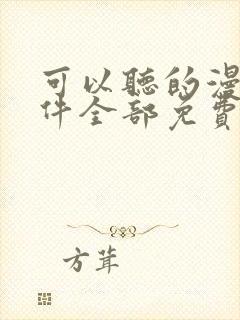 可以聽的漫
件全部免費
方茸